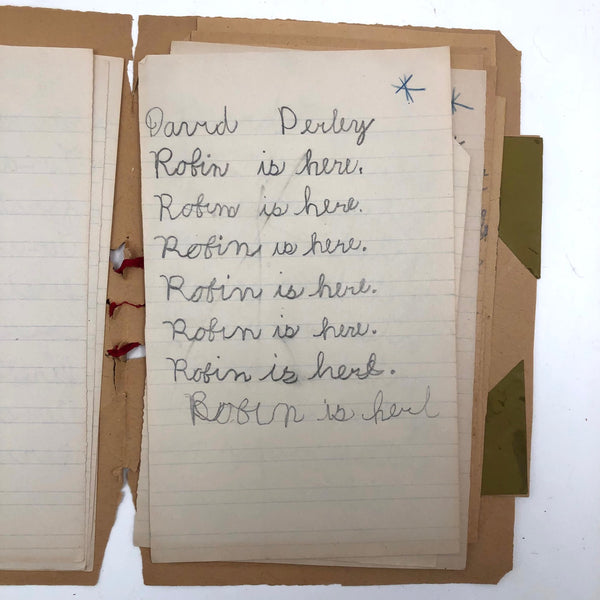 David Derley
Robin is here.
Robin is here.
Robin is here.
Robin is here.
Robin is here.
Robin is here.
Robin is here